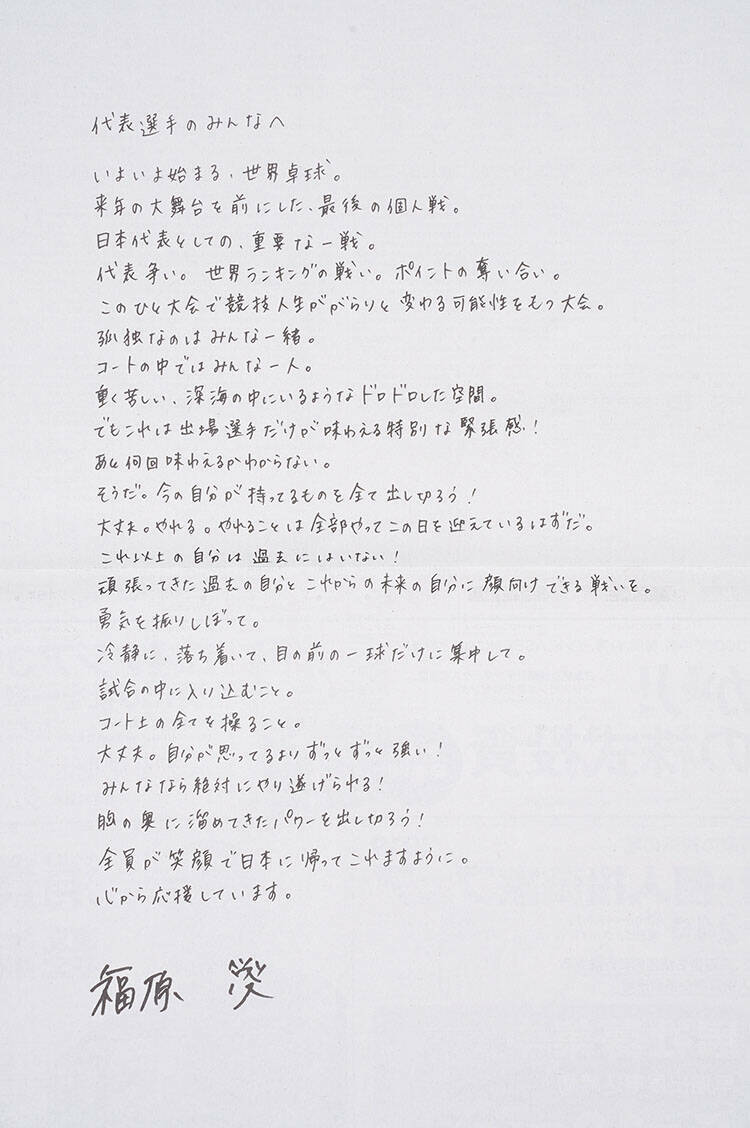 代表選手のみんなへ
いよいよ始まる、世界卓球。
来年の大舞台を前にした、最後の個人戦。
日本代表としての、重要な一戦。
代表争い。世界ランキングの戦い。ポイントの奪い合い。
このひと大会で競技人生ががらりと変わる可能性をもつ大会。
孤独なのはみんな一緒。
コートの中ではみんな一人。
重く苦しい、深海の中にいるようなドロドロした空間。
でもこれは出場選手だけが味わえる特別な緊張感！
あと何回味わえるかわからない。
そうだ。今の自分が持ってるものを全て出し切ろう！
大丈夫。やれる。やれることは全部やってこの日を迎えているはずだ。
これ以上の自分は過去にはいない！
頑張ってきた過去の自分とこれからの未来の自分に顔向けできる戦いを。
勇気を振りしぼって。
冷静に、落ち着いて、目の前の一球だけに集中して。
試合の中に入り込むこと。
コート上の全てを操ること。
大丈夫。自分が思ってるよりずっとずっと強い！
みんななら絶対にやり遂げられる！
胸の奥に溜めてきたパワーを出し切ろう！
全員が笑顔で日本に帰ってこれますように。
心から応援しています。
福原 愛